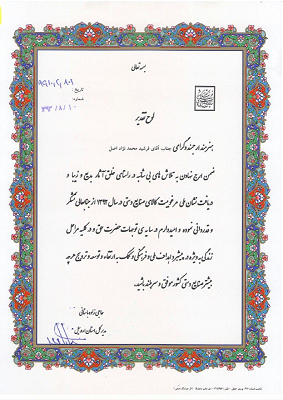 بسمه تعالی
تاریخ:
شماره:
لوح تقدیر
هنرمند ارجمند و گرامی جناب آقای فرشید محمد نژاد اصل
ضمن ارج نهادن به تلاش های بی شائبه در راستای خلق آثار بدیع و زیبا و
دریافت نشان ملی مرغوبیت کالای صنایع دستی در سال ۱۳۹۲ از جنابعالی تشکر
و قدردانی نموده و امیدوارم در سایه ی توجهات حضرت حق و در کلیه مراحل
زندگی به ویژه در پیشبرد اهداف ملی و فرهنگی و کمک به ارتقاء و توسعه و ترویج هر چه
بیشتر صنایع دستی کشور موفق و سربلند باشید.
مدیر کل استان اردبیل